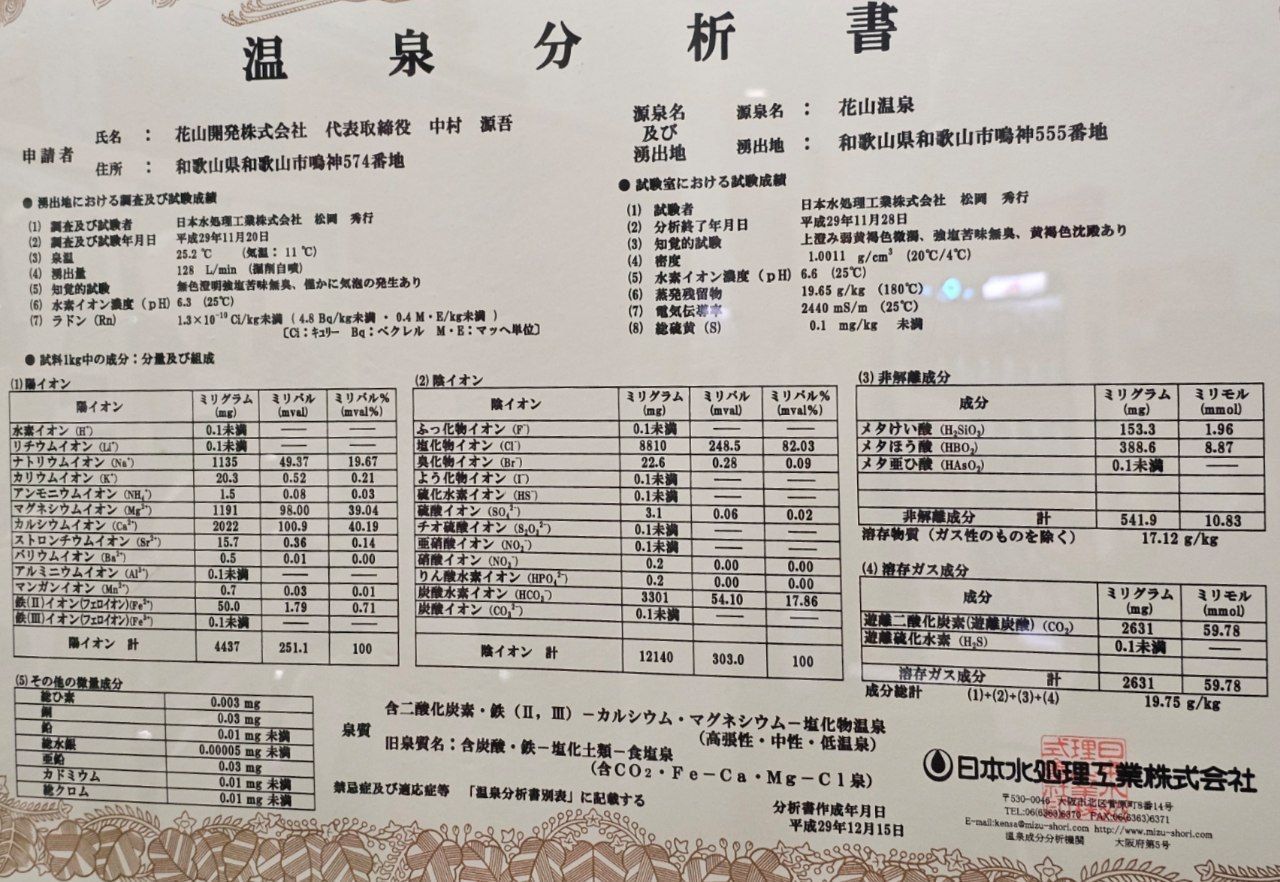 温泉分析書
申請者
氏名 ： 花山開発株式会社 代表取締役 中村 源吾
住所 ： 和歌山県和歌山市鳴神574番地
源泉名及び湧出地
源泉名 ： 花山温泉
湧出地 ： 和歌山県和歌山市鳴神555番地
● 湧出地における調査及び試験成績
(1) 調査及び試験者 日本水処理工業株式会社 松岡 秀行
(2) 調査及び試験年月日 平成29年11月20日
(3) 泉温 25.2 ℃ （気温： 11 ℃）
(4) 湧出量 128 L/min （掘削自噴）
(5) 知覚的試験 無色澄明強塩苦味無臭、僅かに気泡の発生あり
(6) 水素イオン濃度（pH) 6.3 (25℃)
(7) ラドン (Rn) 1.3×10⁻¹⁰ Ci/kg未満 ( 4.8 Bq/kg未満 ・ 0.4 M・E/kg未満 )
〔Ci：キュリー Bq：ベクレル M・E：マッヘ単位〕
● 試験室における試験成績
(1) 試験者 日本水処理工業株式会社 松岡 秀行
(2) 分析終了年月日 平成29年11月28日
(3) 知覚的試験 上澄み弱黄褐色微濁、強塩苦味無臭、黄褐色沈殿あり
(4) 密度 1.0011 g/cm³ (20℃/4℃)
(5) 水素イオン濃度（pH) 6.6 (25℃)
(6) 蒸発残留物 19.65 g/kg (180℃)
(7) 電気伝導率 2440 mS/m (25℃)
(8) 総硫黄 (S) 0.1 mg/kg 未満
● 試料1kg中の成分：分量及び組成
(1) 陽イオン
陽イオン ミリグラム(mg) ミリバル(mval) ミリバル%(mval%)
水素イオン (H⁺) 0.1未満 —— ——
リチウムイオン (Li⁺) 0.1未満 —— ——
ナトリウムイオン (Na⁺) 1135 49.37 19.67
カリウムイオン (K⁺) 20.3 0.52 0.21
アンモニウムイオン (NH₄⁺) 1.5 0.08 0.03
マグネシウムイオン (Mg²⁺) 1191 98.00 39.04
カルシウムイオン (Ca²⁺) 2022 100.9 40.19
ストロンチウムイオン (Sr²⁺) 15.7 0.36 0.14
バリウムイオン (Ba²⁺) 0.5 0.01 0.00
アルミニウムイオン (Al³⁺) 0.1未満 —— ——
マンガンイオン (Mn²⁺) 0.7 0.03 0.01
鉄(II)イオン(フェロイオン)(Fe²⁺) 50.0 1.79 0.71
鉄(III)イオン(フェロイオン)(Fe³⁺) 0.1未満 —— ——
陽イオン 計 4437 251.1 100
(2) 陰イオン
陰イオン ミリグラム(mg) ミリバル(mval) ミリバル%(mval%)
ふっ化物イオン (F⁻) 0.1未満 —— ——
塩化物イオン (Cl⁻) 8810 248.5 82.03
臭化物イオン (Br⁻) 22.6 0.28 0.09
よう化物イオン (I⁻) 0.1未満 —— ——
硫化水素イオン (HS⁻) 0.1未満 —— ——
硫酸イオン (SO₄²⁻) 3.1 0.06 0.02
チオ硫酸イオン (S₂O₃²⁻) 0.1未満 —— ——
亜硝酸イオン (NO₂⁻) 0.1未満 —— ——
硝酸イオン (NO₃⁻) 0.2 0.00 0.00
りん酸水素イオン (HPO₄²⁻) 0.2 0.00 0.00
炭酸水素イオン (HCO₃⁻) 3301 54.10 17.86
炭酸イオン (CO₃²⁻) 0.1未満 —— ——
陰イオン 計 12140 303.0 100
(3) 非解離成分
成分 ミリグラム(mg) ミリモル(mmol)
メタけい酸 (H₂SiO₃) 153.3 1.96
メタほう酸 (HBO₂) 388.6 8.87
メタ亜ひ酸 (HAsO₂) 0.1未満 ——
非解離成分 計 541.9 10.83
溶存物質（ガス性のものを除く） 17.12 g/kg
(4) 溶存ガス成分
成分 ミリグラム(mg) ミリモル(mmol)
遊離二酸化炭素(遊離炭酸) (CO₂) 2631 59.78
遊離硫化水素 (H₂S) 0.1未満 ——
溶存ガス成分 計 2631 59.78
成分総計 (1)+(2)+(3)+(4) 19.75 g/kg
(5) その他の微量成分
総ひ素 0.003 mg
銅 0.03 mg
鉛 0.01 mg 未満
総水銀 0.00005 mg 未満
亜鉛 0.03 mg
カドミウム 0.01 mg 未満
総クロム 0.01 mg 未満
泉質 含二酸化炭素・鉄（II, III）−カルシウム・マグネシウム−塩化物温泉
（高張性・中性・低温泉）
旧泉質名：含炭酸・鉄−塩化土類−食塩泉
（含CO₂・Fe−Ca・Mg−Cl泉）
禁忌症及び適応症等 「温泉分析書別表」に記載する
分析書作成年月日
平成29年12月15日
日本水処理工業株式会社
〒530-0046 大阪市北区菅原町8番14号
TEL:06(6363)6370 FAX:06(6363)6371
E-mail:kensa@mizu-shori.com http://www.mizu-shori.com
温泉成分分析機関 大阪府第5号